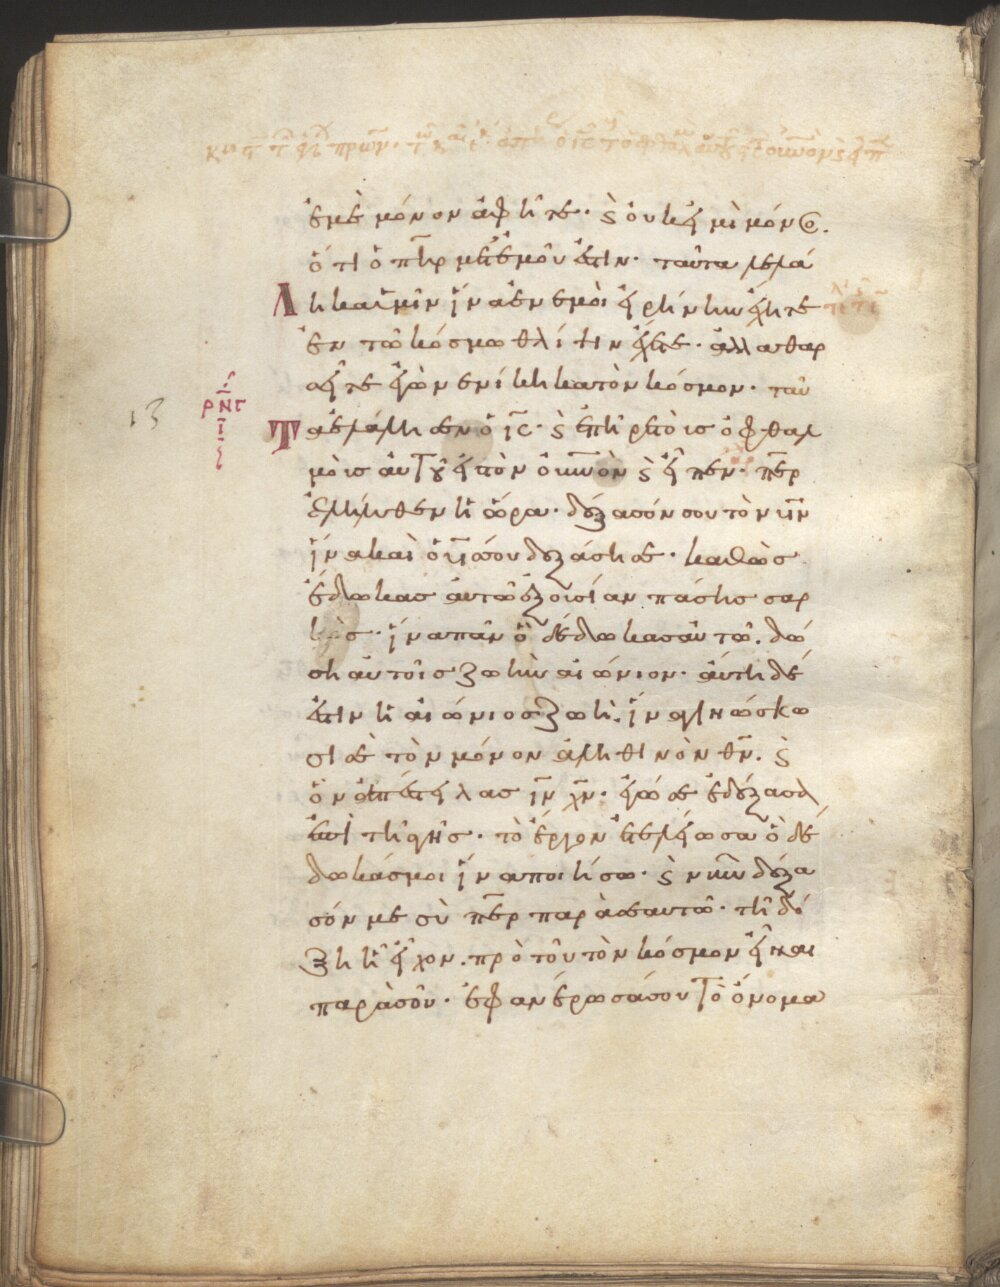 ἐμὲ μόνον ἀφῆτε· ϛ οὐκ εἰμὶ μόνος.
ὅτι ὁ πηρ μετ ἐμοῦ ἐστιν· ταῦτα λελά
ληκα ὑμῖν ἵνα ἐν ἐμοὶ εἰρήνην ἔχητε
ἐν τῶ κόσμω θλίψιν ἕξετε· ἀλλα θαρ
σεῖτε ἐγὼ νενίκηκα τὸν κόσμον· ταῦ
Τα ἐλάλησεν ὁ ις· ϛ ἐπῆρε τοὺς ὀφθαλ
μοὺς αὐτοῦ εἰς τὸν οὐνον ϛ εἶπεν· περ
ἐλήλυθεν ἡ ὥρα· δόξασόν σου τὸν υν
ἵνα καὶ ὁ υς σου δοξάση σε· καθὼς
ἔδωκας αὐτῶ ἐξουσίαν πάσης σαρ
κὸς· ἵνα πᾶν ὃ δέδωκας αὐτῶ. δώ
ση αὐτοῖς ζωὴν αἰώνιον· αὕτη δέ
ἐστιν ἡ αἰώνιος ζωὴ. ἵνα γινώσκω
σι σὲ τὸν μόνον ἀληθινὸν θν. ϛ
ὃν ἀπέστειλας ιν χν· ἐγώ σε ἐδόξασα
ἐπὶ τῆς γῆς· τὸ ἔργον ἐτελείωσα ὃ δέ
δωκάς μοι ἵνα ποιήσω· ϛ νῦν δόξα
σόν με σὺ περ παρὰ σεαυτῶ· τῆ δό
ξη ἧ εἶχον. πρὸ τοῦ τὸν κόσμον εἶναι
παρὰ σοῦ· ἐφανέρωσά σου τὸ ὄνομα
13
ρνγ